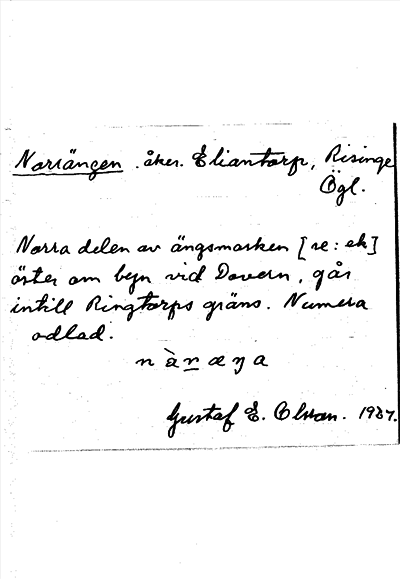 Norrängen . åker. Eliantorp, Risinge
Ögl.
Norra delen av ängsmarken [se: ek]
öster om byn vid Dovern, går
intill Ringtorps gräns. Numera
odlad.
n à n æ ŋ a
Gustaf E. Olsson. 1937.